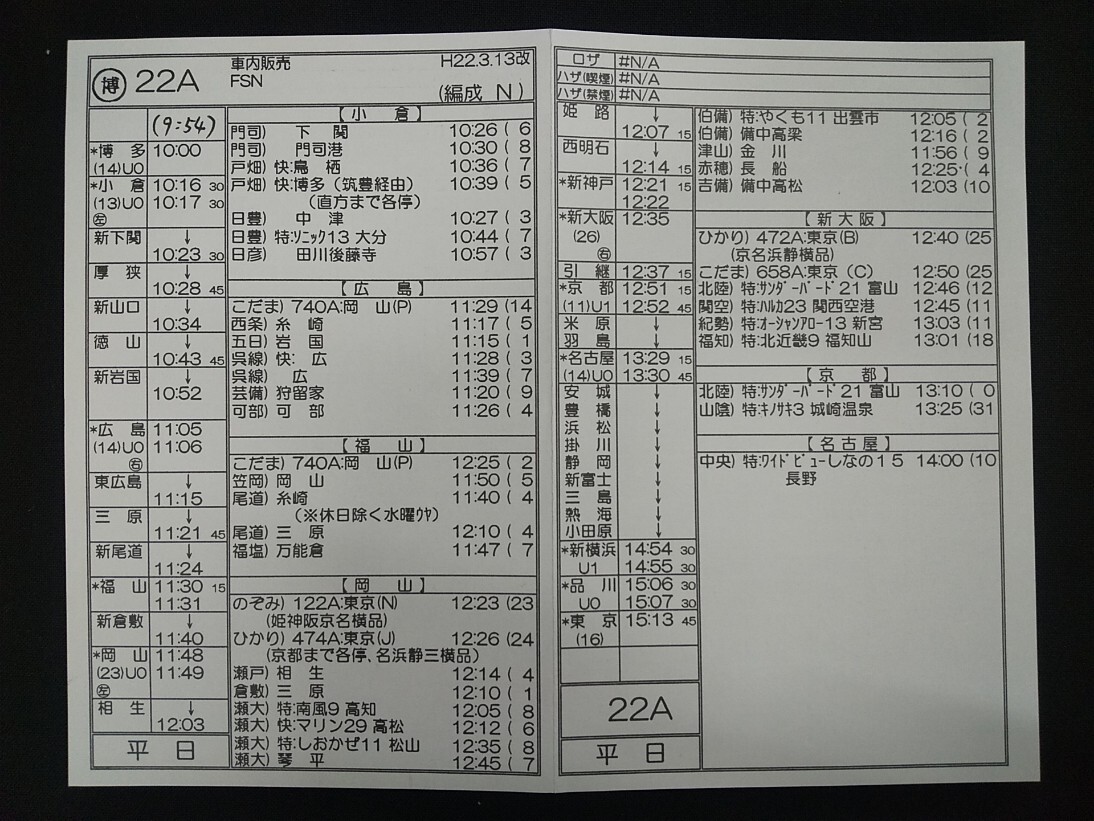 博 22A 車内販売 H22.3.13改
FSN
(編成 N)
(9:54)
*博 多 10:00
(14)U0
*小 倉 10:16 30
(13)U0 10:17 30
左
新下関 ↓
10:23 30
厚 狭 ↓
10:28 45
新山口 ↓
10:34
徳 山 ↓
10:43 45
新岩国 ↓
10:52
*広 島 11:05
(14)U0 11:06
右
東広島 ↓
11:15
三 原 ↓
11:21 45
新尾道 ↓
11:24
*福 山 11:30 15
11:31
新倉敷 ↓
11:40
*岡 山 11:48
(23)U0 11:49
左
相 生 ↓
12:03
平 日
【 小 倉 】
門司) 下 関 10:26 ( 6
門司) 門司港 10:30 ( 8
戸畑) 快:鳥 栖 10:36 ( 7
戸畑) 快:博多 (筑豊経由) 10:39 ( 5
(直方まで各停)
日豊) 中 津 10:27 ( 3
日豊) 特:ソニック13 大分 10:44 ( 7
日彦) 田川後藤寺 10:57 ( 3
【 広 島 】
こだま) 740A:岡 山(P) 11:29 (14
西条) 糸 崎 11:17 ( 5
五日) 岩 国 11:15 ( 1
呉線) 快: 広 11:28 ( 3
呉線) 広 11:39 ( 7
芸備) 狩留家 11:20 ( 9
可部) 可 部 11:26 ( 4
【 福 山 】
こだま) 740A:岡 山(P) 12:25 ( 2
笠岡) 岡 山 11:50 ( 5
尾道) 糸崎 11:40 ( 4
(※休日除く水曜ウヤ)
尾道) 三 原 12:10 ( 4
福塩) 万能倉 11:47 ( 7
【 岡 山 】
のぞみ) 122A:東京(N) 12:23 (23
(姫神阪京名横品)
ひかり) 474A:東京(J) 12:26 (24
(京都まで各停、名浜静三横品)
瀬戸) 相 生 12:14 ( 4
倉敷) 三 原 12:10 ( 1
瀬大) 特:南風9 高知 12:05 ( 8
瀬大) 快:マリン29 高松 12:12 ( 6
瀬大) 特:しおかぜ11 松山 12:35 ( 8
瀬大) 琴 平 12:45 ( 7
ロザ #N/A
ハザ(喫煙) #N/A
ハザ(禁煙) #N/A
姫 路 ↓
12:07 15
西明石 ↓
12:14 15
*新神戸 12:21 15
12:22
*新大阪 12:35
(26)
右
引 継 12:37 15
*京 都 12:51 15
(11)U1 12:52 45
米 原 ↓
羽 島 ↓
*名古屋 13:29 15
(14)U0 13:30 45
安 城 ↓
豊 橋 ↓
浜 松 ↓
掛 川 ↓
静 岡 ↓
新富士 ↓
三 島 ↓
熱 海 ↓
小田原 ↓
*新横浜 14:54 30
U1 14:55 30
*品 川 15:06 30
U0 15:07 30
*東 京 15:13 45
(16)
22A
平 日
伯備) 特:やくも11 出雲市 12:05 ( 2
伯備) 備中高梁 12:16 ( 2
津山) 金 川 11:56 ( 9
赤穂) 長 船 12:25 ( 4
吉備) 備中高松 12:03 (10
【 新大阪 】
ひかり) 472A:東京(B) 12:40 (25
(京名浜静横品)
こだま) 658A:東京 (C) 12:50 (25
北陸) 特:サンダーバード21 富山 12:46 (12
関空) 特:ハルカ23 関西空港 12:45 (11
紀勢) 特:オーシャンアロー13 新宮 13:03 (11
福知) 特:北近畿9 福知山 13:01 (18
【 京 都 】
北陸) 特:サンダーバード21 富山 13:10 ( 0
山陰) 特:キノサキ3 城崎温泉 13:25 (31
【 名古屋 】
中央) 特:ワイドビューしなの15 14:00 (10
長野